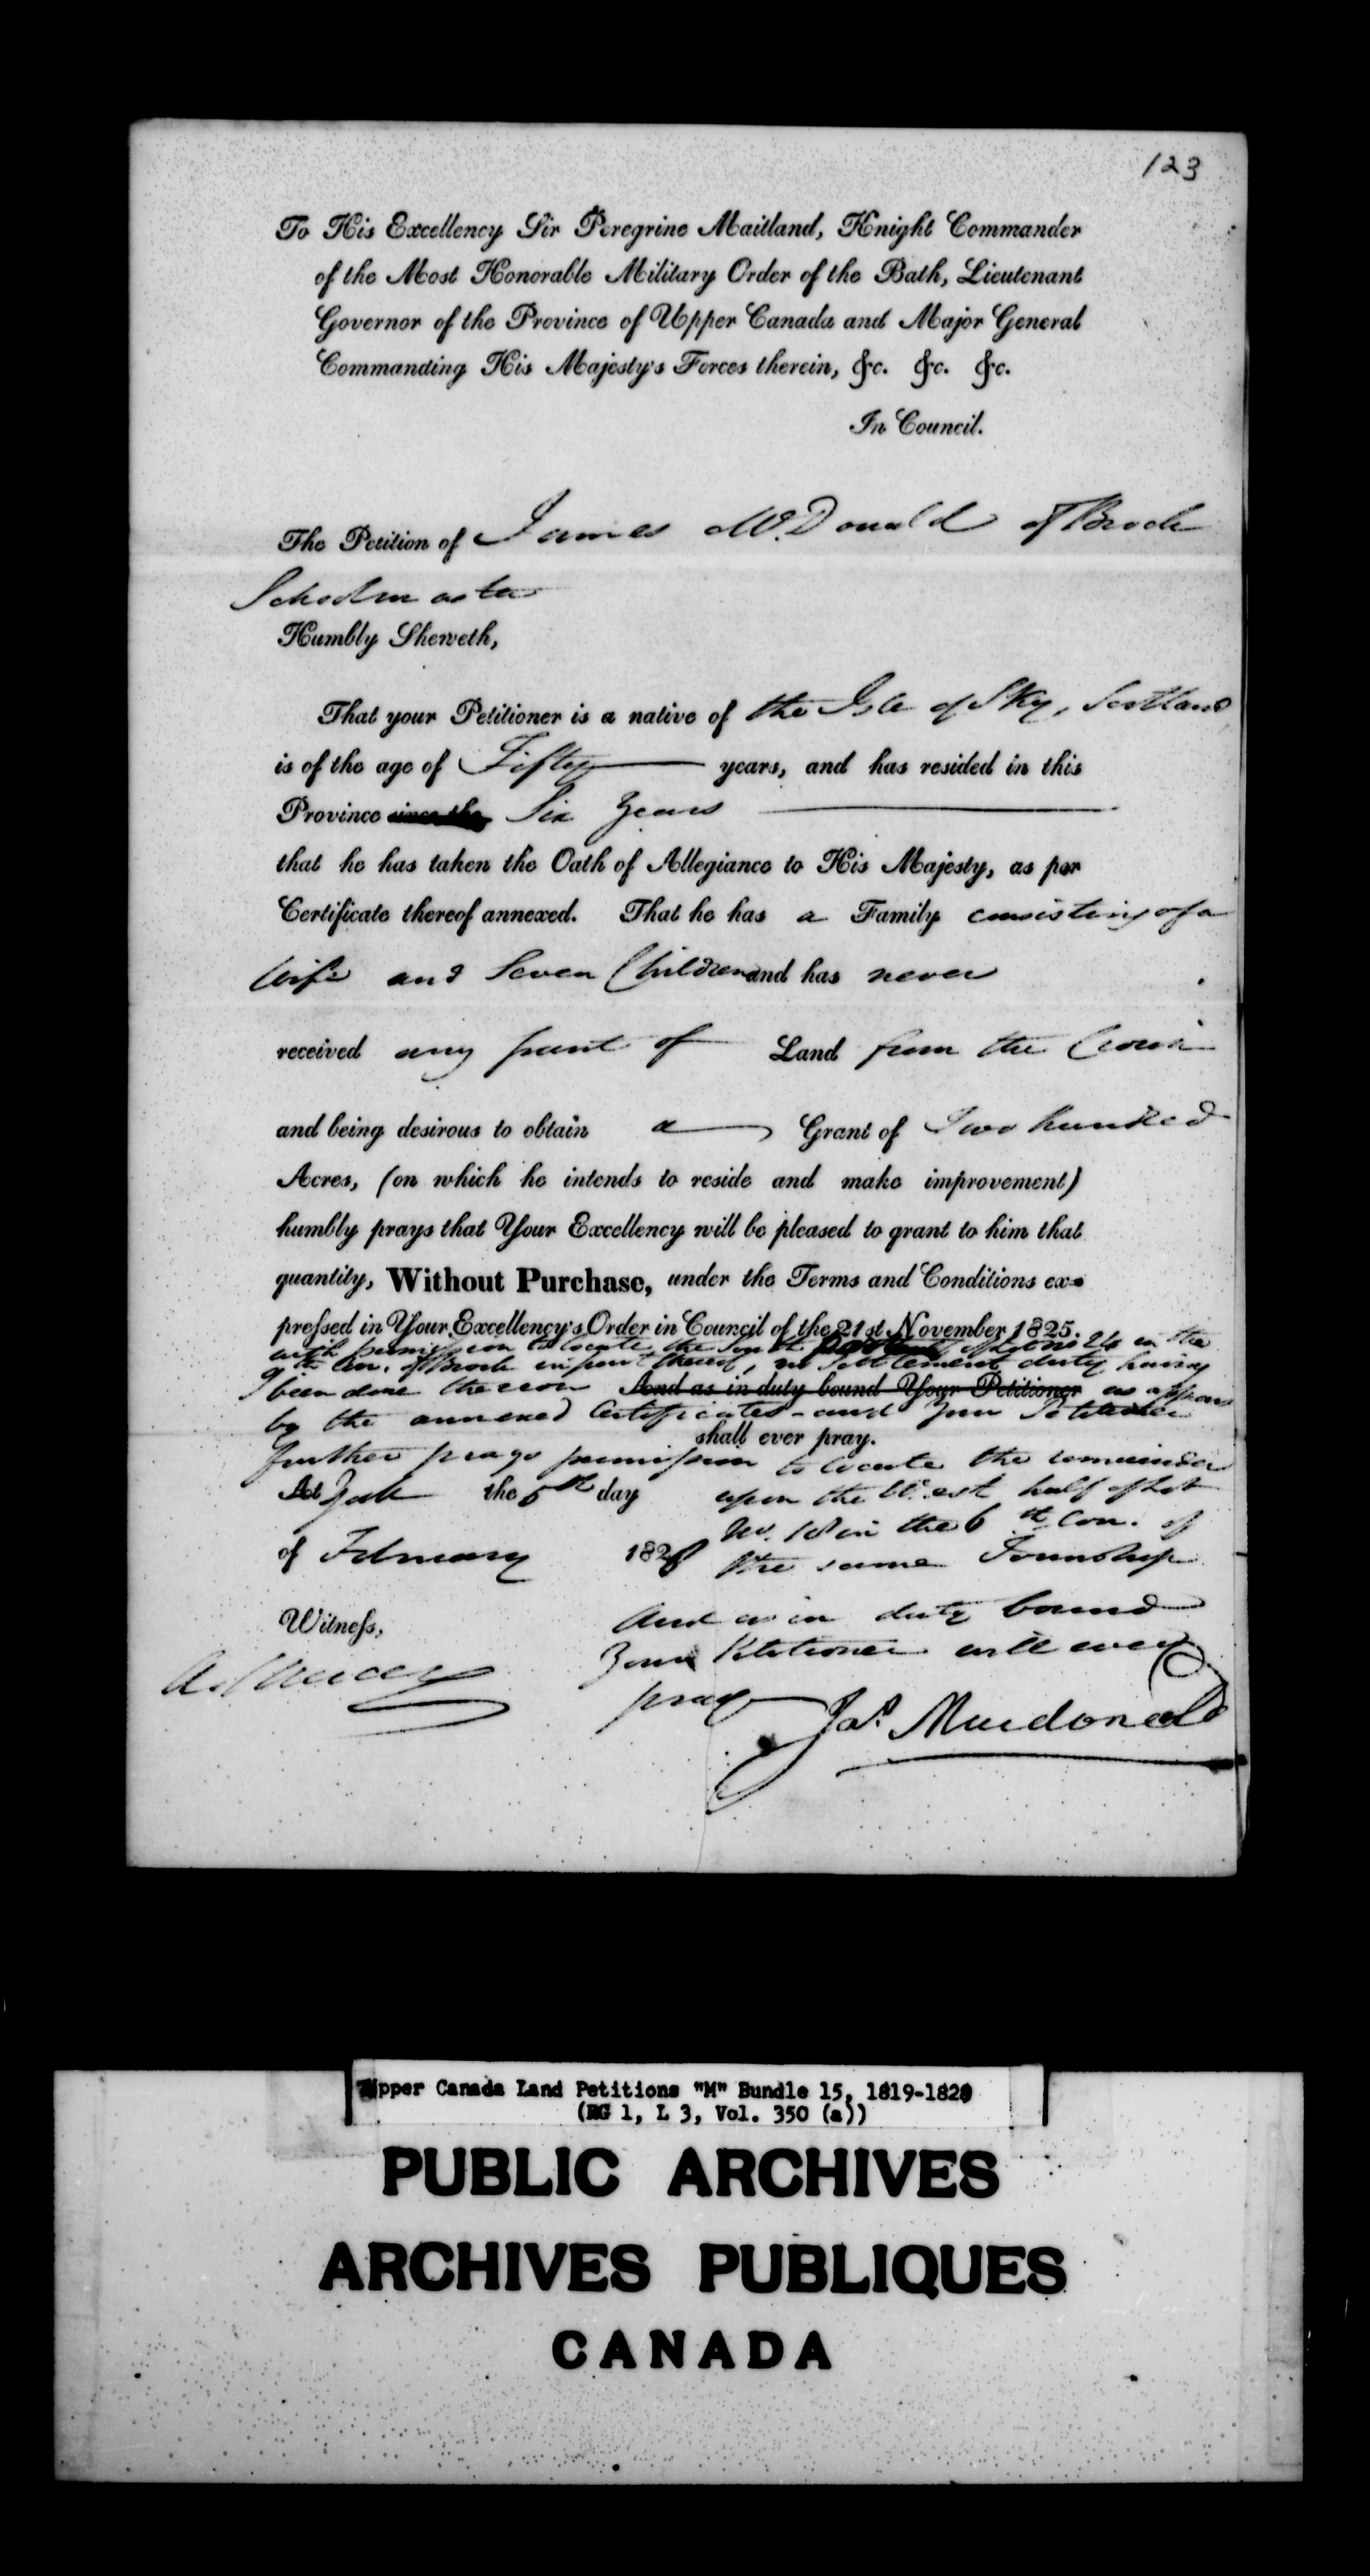 123
To His Excellency Sir Peregrine Maitland, Knight Commander
of the Most Honorable Military Order of the Bath, Lieutenant
Governor of the Province of Upper Canada and Major General
Commanding His Majesty's Forces therein, &c. &c. &c.
In Council.
The Petition of James McDonald of Brock
Schoolmaster
Humbly Sheweth,
That your Petitioner is a native of the Isle of Sky, Scotland
is of the age of Fifty years, and has resided in this
Province since the Six Years
that he has taken the Oath of Allegiance to His Majesty, as per
Certificate thereof annexed. That he has a Family consisting of a
Wife and Seven Children and has never
received any grant of Land from the Crown
and being desirous to obtain a Grant of Two hundred
Acres, (on which he intends to reside and make improvement)
humbly prays that Your Excellency will be pleased to grant to him that
quantity, Without Purchase, under the Terms and Conditions ex-
pressed in Your Excellency's Order in Council of the 21st November 1825.
with permission to locate the South of Lot No 24 in the
9th Con. of Brock in part thereof, no Settlement duty having
been done thereon And as in duty bound Your Petitioner as appears
by the annexed Certificates - and Your Petitioner
shall ever pray.
further prays permission to locate the remainder
At York the 5th day upon the West half of Lot
No. 18 in the 6th Con. of
of February 1828 the same Township
Witness, And as in duty bound
Your Petitioner will ever
pray
Jas. Macdonald
Upper Canada Land Petitions "M" Bundle 15, 1819-1828
(RG 1, L 3, Vol. 350 (a))
PUBLIC ARCHIVES
ARCHIVES PUBLIQUES
CANADA